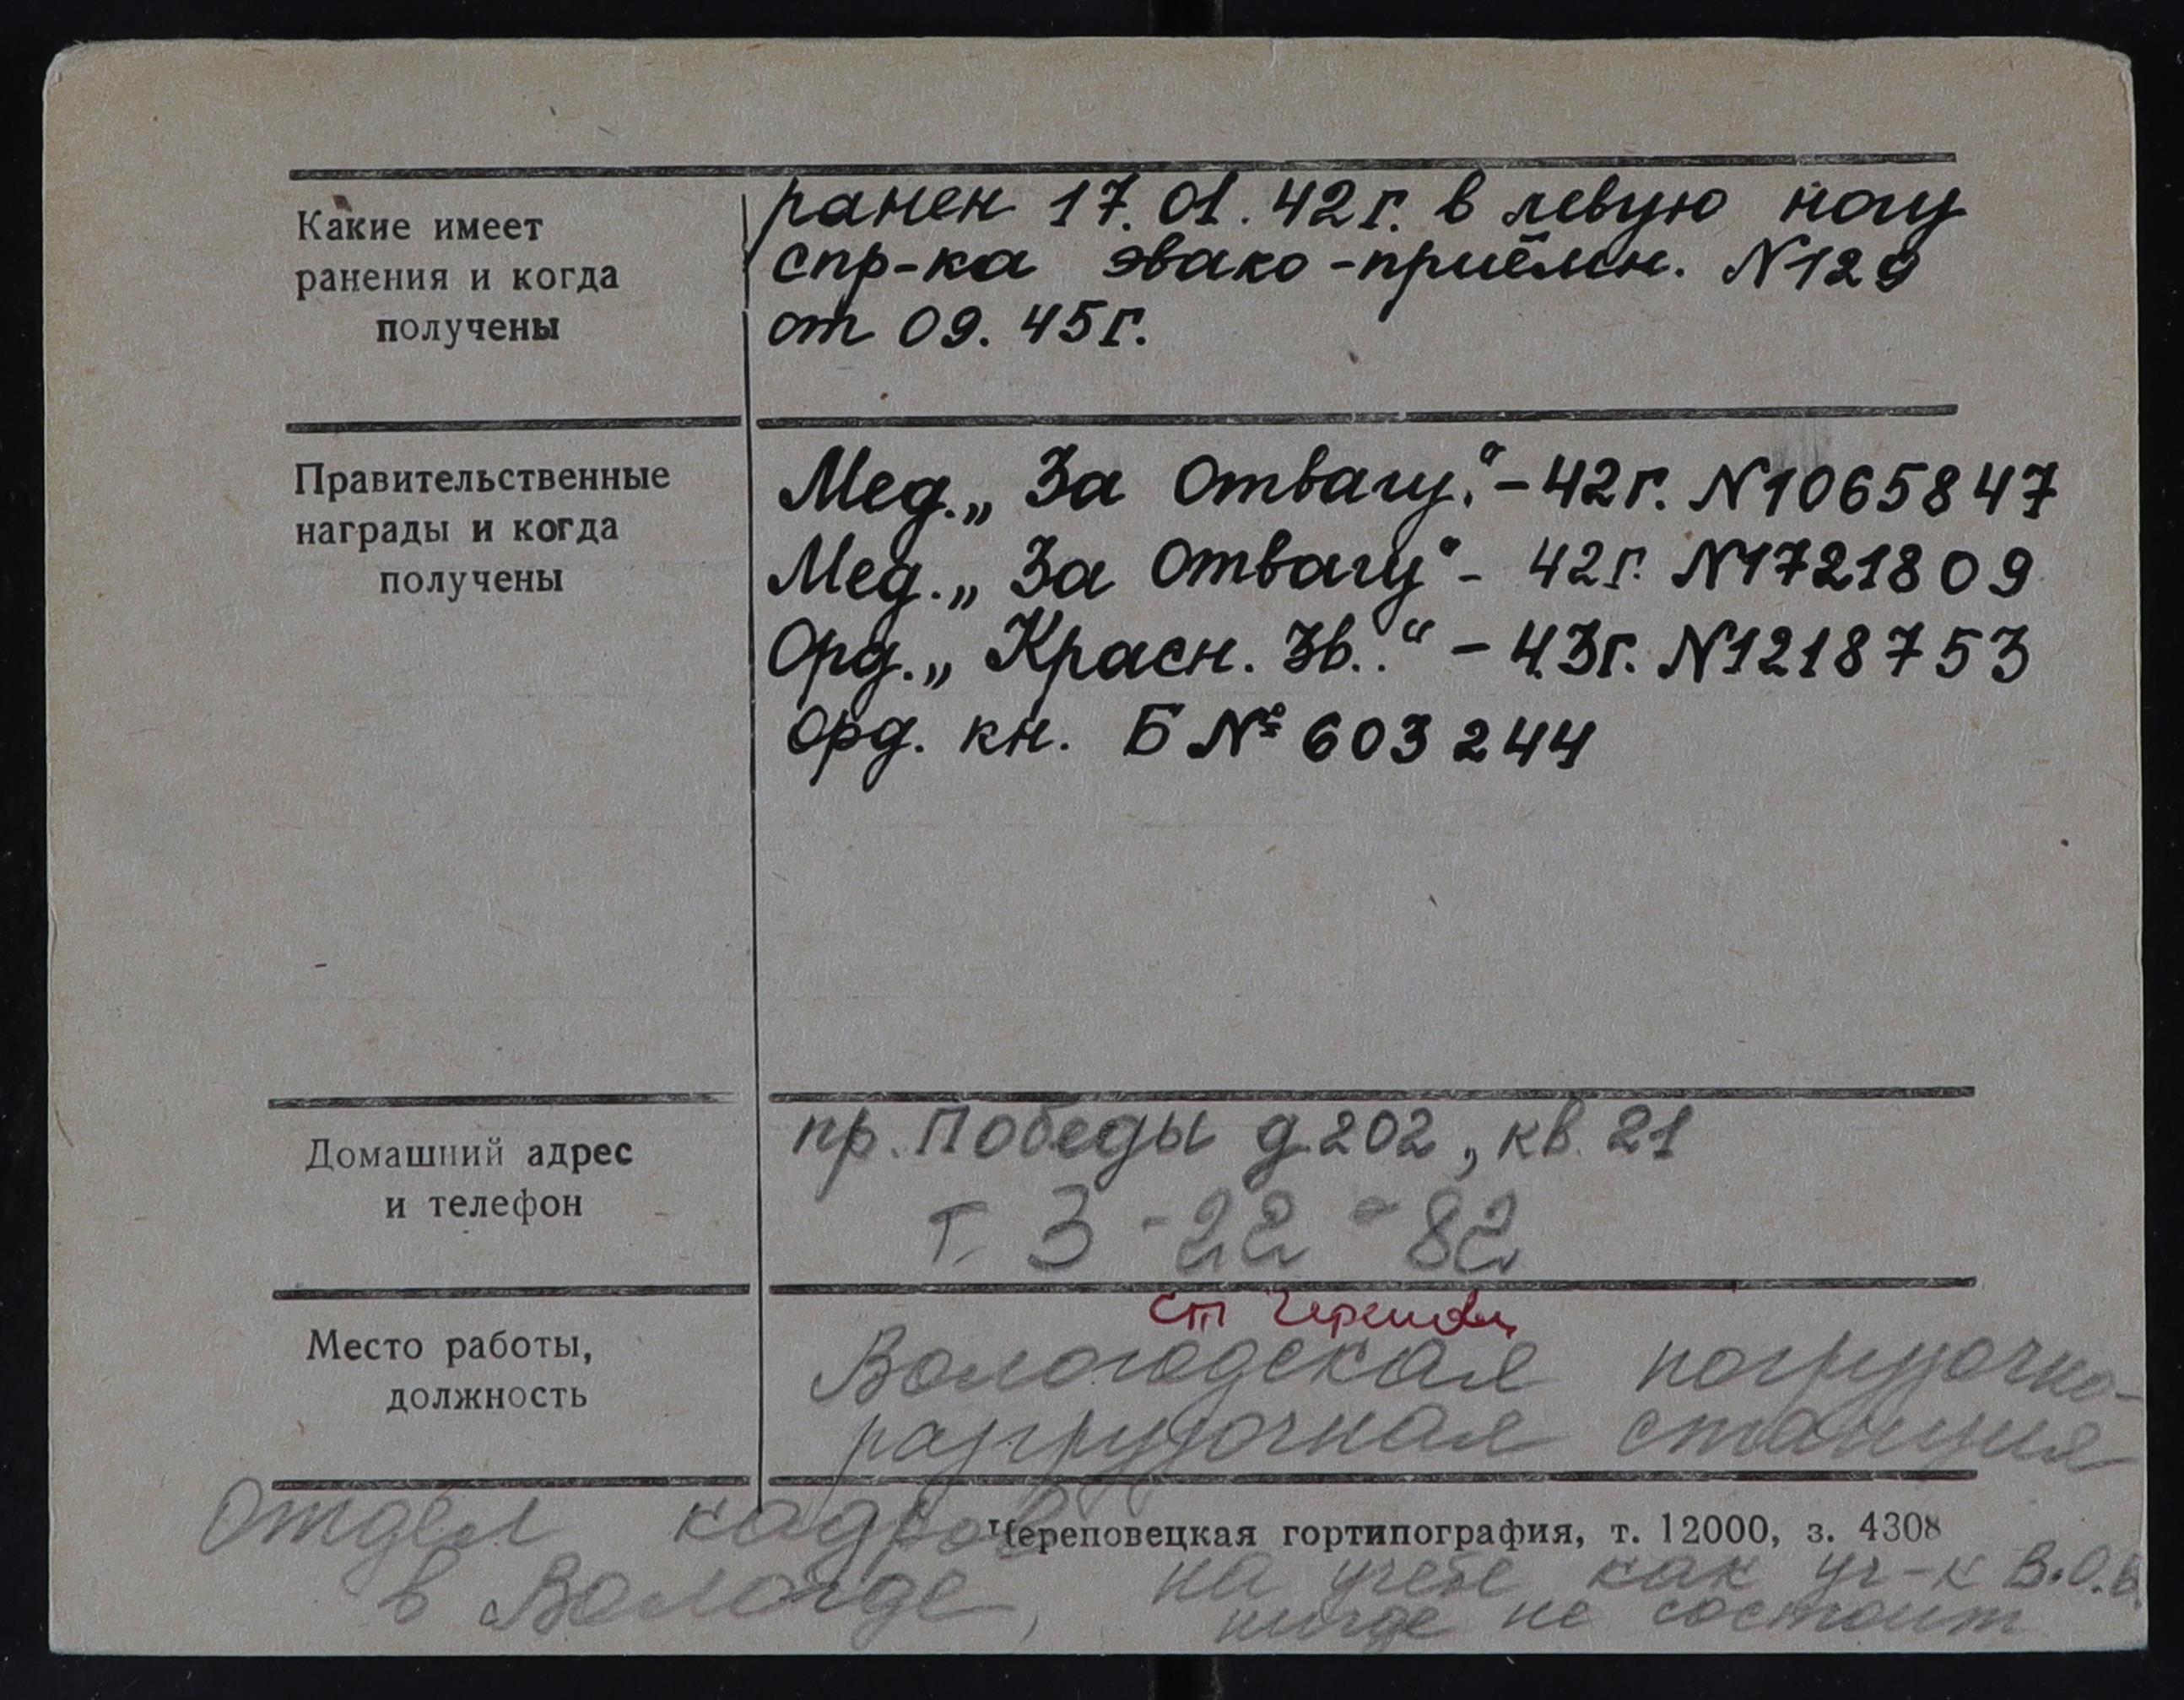 Какие имеет
ранения и когда
получены
ранен 17.01.42г. в левую ногу
спр-ка эвако-приёмн. N129
от 09.45г.
Правительственные
награды и когда
получены
Мед. „За Отвагу."-42г. N1065847
Мед. „За Отвагу"- 42г. N1721809
Орд. „Красн. Зв.."-43г. N1218753
Орд. кн. Б № 603244
Домашний адрес
и телефон
пр. Победы д.202, кв. 21
т. 3-22-82
Место работы,
должность
ст Череповец
Вологодская погрузочно-
разгрузочная станция
Отдел кадров
в Вологде,
Череповецкая гортипография, т. 12000, з. 4308
на учете как уч-к В.О.В.
нигде не состоит